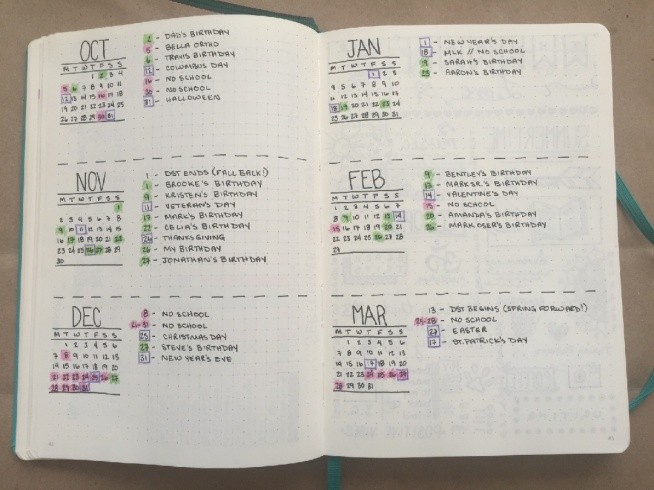 OCT
M T W T F S S
1 2 3 4
5 6 7 8 9 10 11
12 13 14 15 16 17 18
19 20 21 22 23 24 25
26 27 28 29 30 31
2 - DAD'S BIRTHDAY
5 - BELLA ORTHO
6 - TRAVIS BIRTHDAY
12 - COLUMBUS DAY
16 - NO SCHOOL
30 - NO SCHOOL
31 - HALLOWEEN
NOV
M T W T F S S
1
2 3 4 5 6 7 8
9 10 11 12 13 14 15
16 17 18 19 20 21 22
23 24 25 26 27 28 29
30
1 - DST ENDS (FALL BACK!)
1 - BROOKE'S BIRTHDAY
9 - KRISTEN'S BIRTHDAY
11 - VETERAN'S DAY
17 - MARK'S BIRTHDAY
22 - CELIA'S BIRTHDAY
26 - THANKSGIVING
26 - MY BIRTHDAY
27 - JONATHAN'S BIRTHDAY
DEC
M T W T F S S
1 2 3 4 5 6
7 8 9 10 11 12 13
14 15 16 17 18 19 20
21 22 23 24 25 26 27
28 29 30 31
8 - NO SCHOOL
21-31 - NO SCHOOL
25 - CHRISTMAS DAY
27 - STEVE'S BIRTHDAY
31 - NEW YEAR'S EVE
JAN
M T W T F S S
1 2 3
4 5 6 7 8 9 10
11 12 13 14 15 16 17
18 19 20 21 22 23 24
25 26 27 28 29 30 31
1 - NEW YEAR'S DAY
18 - MLK // NO SCHOOL
19 - SARAH'S BIRTHDAY
23 - AARON'S BIRTHDAY
FEB
M T W T F S S
1 2 3 4 5 6 7
8 9 10 11 12 13 14
15 16 17 18 19 20 21
22 23 24 25 26 27 28
29
9 - BENTLEY'S BIRTHDAY
13 - MARKSR'S BIRTHDAY
14 - VALENTINE'S DAY
15 - NO SCHOOL
20 - AMANDA'S BIRTHDAY
26 - MARK OSER'S BIRTHDAY
MAR
M T W T F S S
1 2 3 4 5 6
7 8 9 10 11 12 13
14 15 16 17 18 19 20
21 22 23 24 25 26 27
28 29 30 31
13 - DST BEGINS (SPRING FORWARD!)
24-28 - NO SCHOOL
27 - EASTER
17 - ST. PATRICK'S DAY